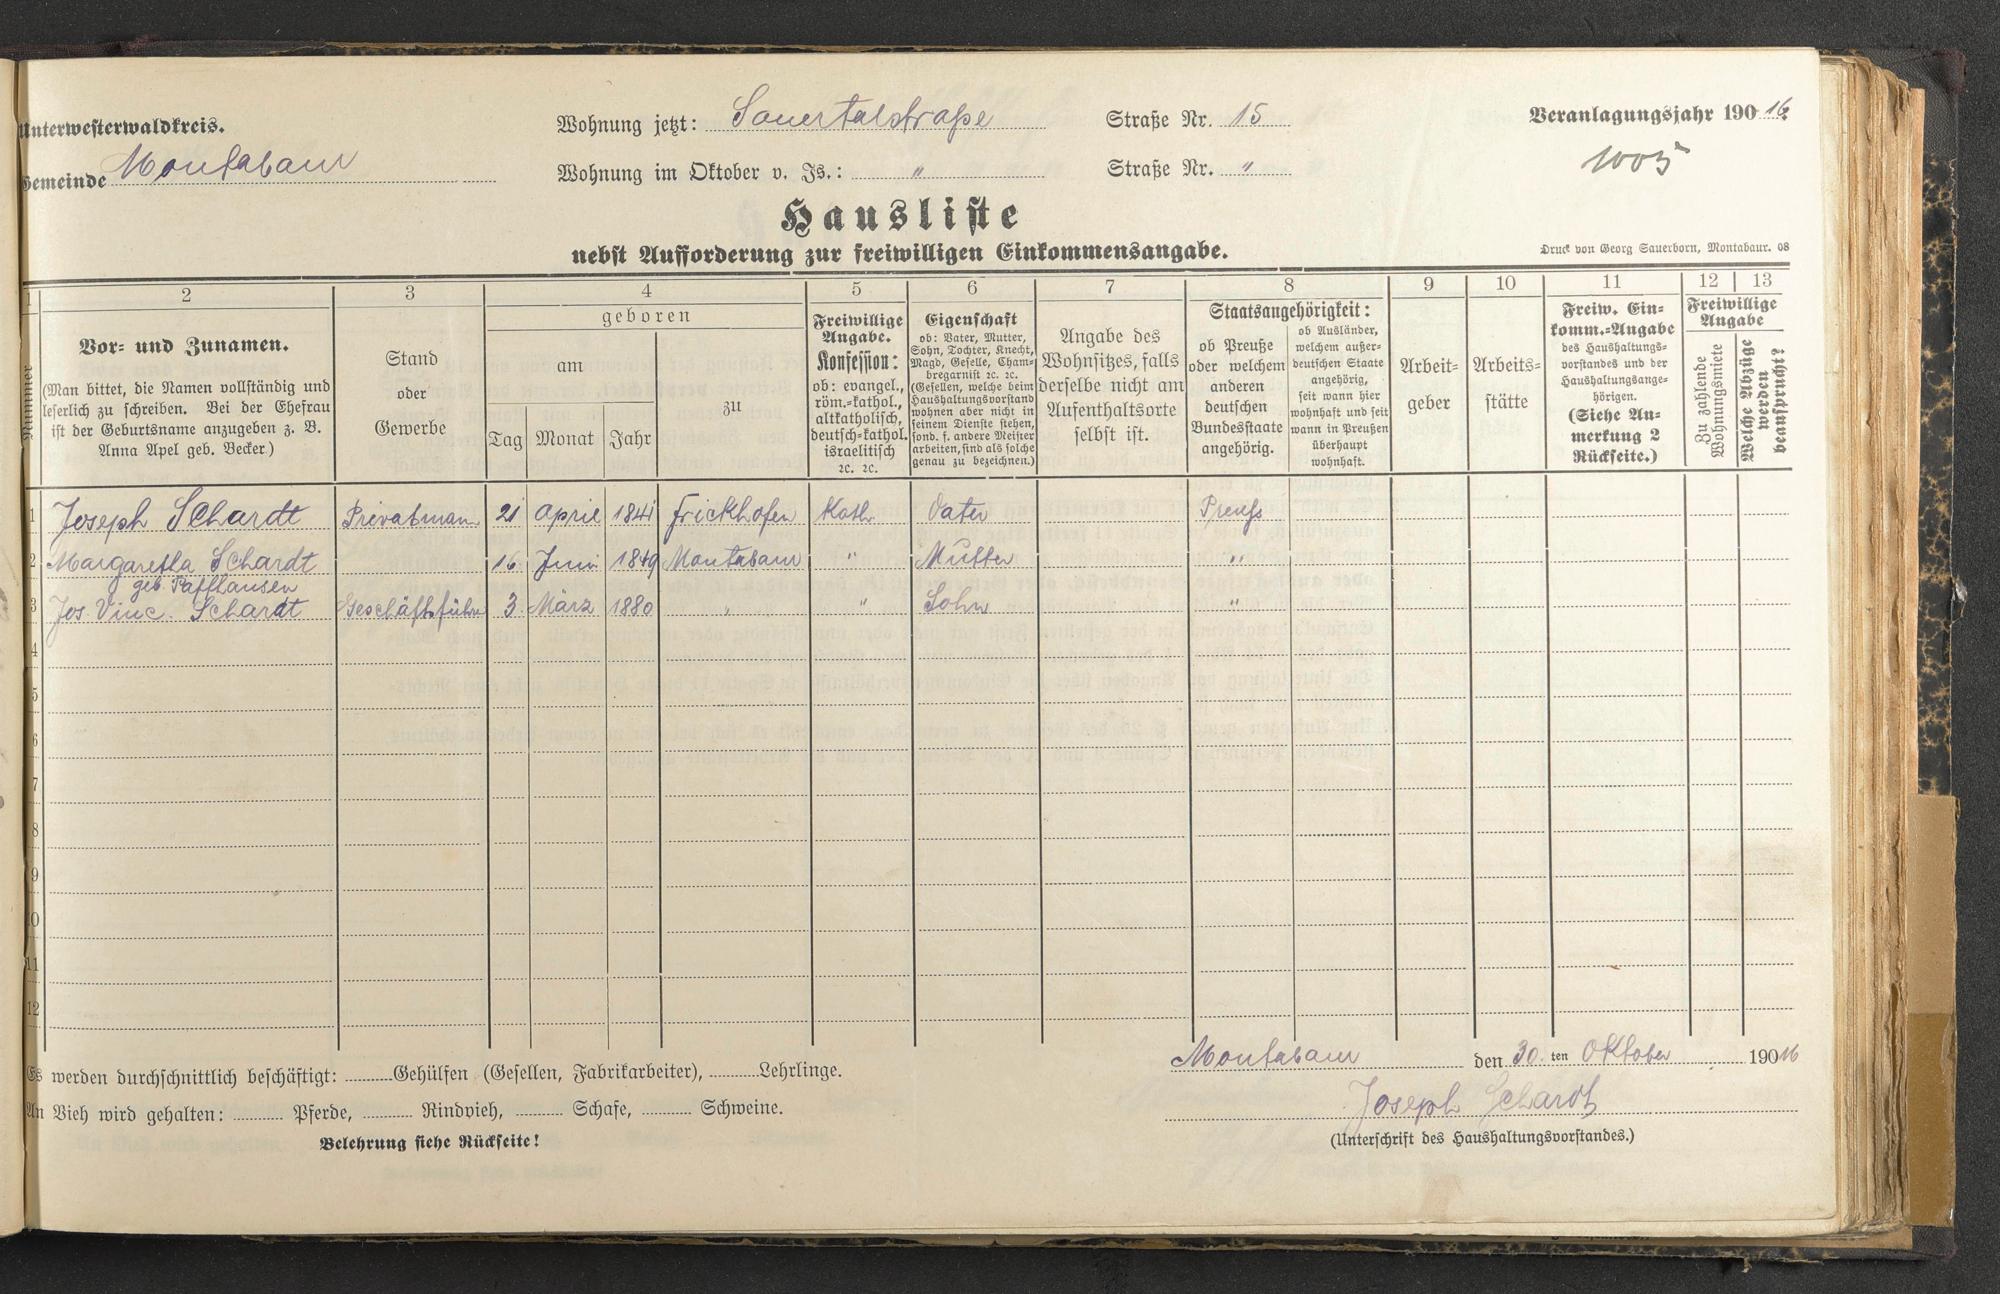 Unterwesterwaldkreis.
Gemeinde Montabaur
Wohnung jetzt: Sauertalstraße Straße Nr. 15
Wohnung im Oktober v. Js.: " Straße Nr. "
Veranlagungsjahr 190 16
1005
Hausliste
nebst Aufforderung zur freiwilligen Einkommensangabe.
Druck von Georg Sauerborn, Montabaur. 08
1 2 3 4 5 6 7 8 9 10 11 12 13
Nummer
Vor- und Zunamen.
(Man bittet, die Namen vollständig und
leserlich zu schreiben. Bei der Ehefrau
ist der Geburtsname anzugeben z. B.
Anna Apel geb. Becker.)
Stand
oder
Gewerbe
geboren
am
zu
Tag Monat Jahr
Freiwillige
Angabe.
Konfession:
ob: evangel.,
röm.-kathol.,
altkatholisch,
deutsch-kathol.
israelitisch
ꝛc. ꝛc.
Eigenschaft
ob: Vater, Mutter,
Sohn, Tochter, Knecht,
Magd, Geselle, Cham-
bregarnist ꝛc. ꝛc.
(Gesellen, welche beim
Haushaltungsvorstand
wohnen aber nicht in
seinem Dienste stehen,
sond. f. andere Meister
arbeiten, sind als solche
genau zu bezeichnen.)
Angabe des
Wohnsitzes, falls
derselbe nicht am
Aufenthaltsorte
selbst ist.
Staatsangehörigkeit:
ob Preuße
oder welchem
anderen
deutschen
Bundesstaate
angehörig.
ob Ausländer,
welchem außer-
deutschen Staate
angehörig,
seit wann hier
wohnhaft und seit
wann in Preußen
überhaupt
wohnhaft.
Arbeit-
geber
Arbeits-
stätte
Freiw. Ein-
komm.-Angabe
des Haushaltungs-
vorstandes und der
Haushaltungsange-
hörigen.
(Siehe An-
merkung 2
Rückseite.)
Freiwillige
Angabe
Zu zahlende
Wohnungsmiete
Welche Abzüge
werden
beansprucht?
1 Joseph Schardt Privatmann 21 April 1841 Frickhofen Kath. Vater Preuß
2 Margaretha Schardt 16. Juni 1849 Montabaur " Mutter "
geb. Paffhausen
3 Jos. Vinc. Schardt Geschäftsführer 3. März 1880 " " Sohn "
4
5
6
7
8
9
10
11
12
Montabaur den 30. ten Oktober 190 16
Es werden durchschnittlich beschäftigt: Gehülfen (Gesellen, Fabrikarbeiter), Lehrlinge.
Joseph Schardt
An Vieh wird gehalten: Pferde, Rindvieh, Schafe, Schweine.
(Unterschrift des Haushaltungsvorstandes.)
Belehrung siehe Rückseite!